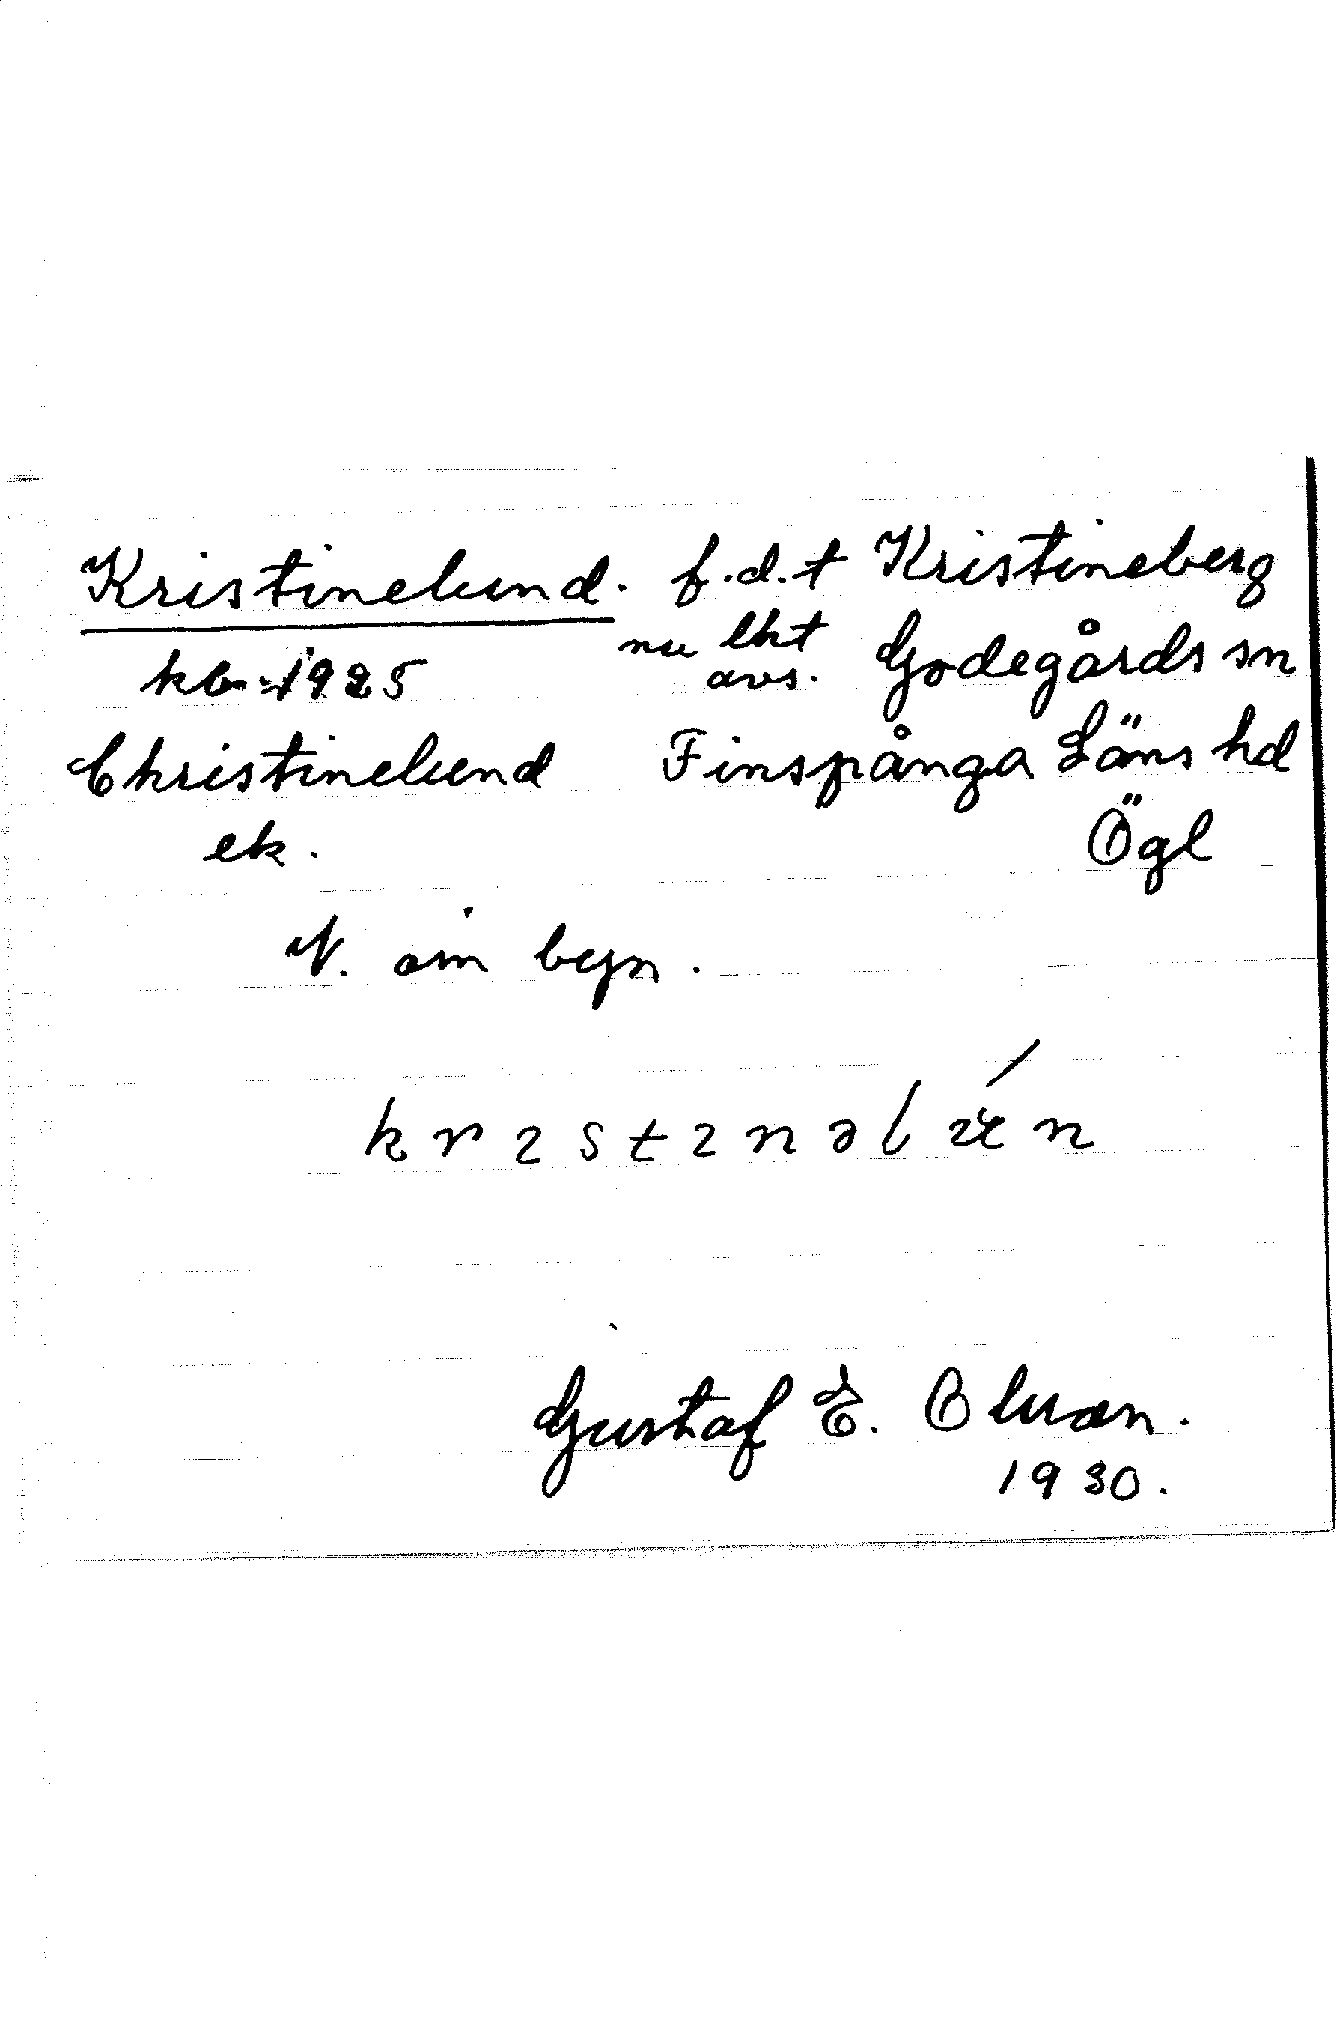 Kristinelund. f.d.t Kristineberg
nu lht avs. Godegårds sn
kb. 1925
Christinelund Finspånga Läns hd
ek. Ögl
N. om byn.
Gustaf E. Olsson.
1930.